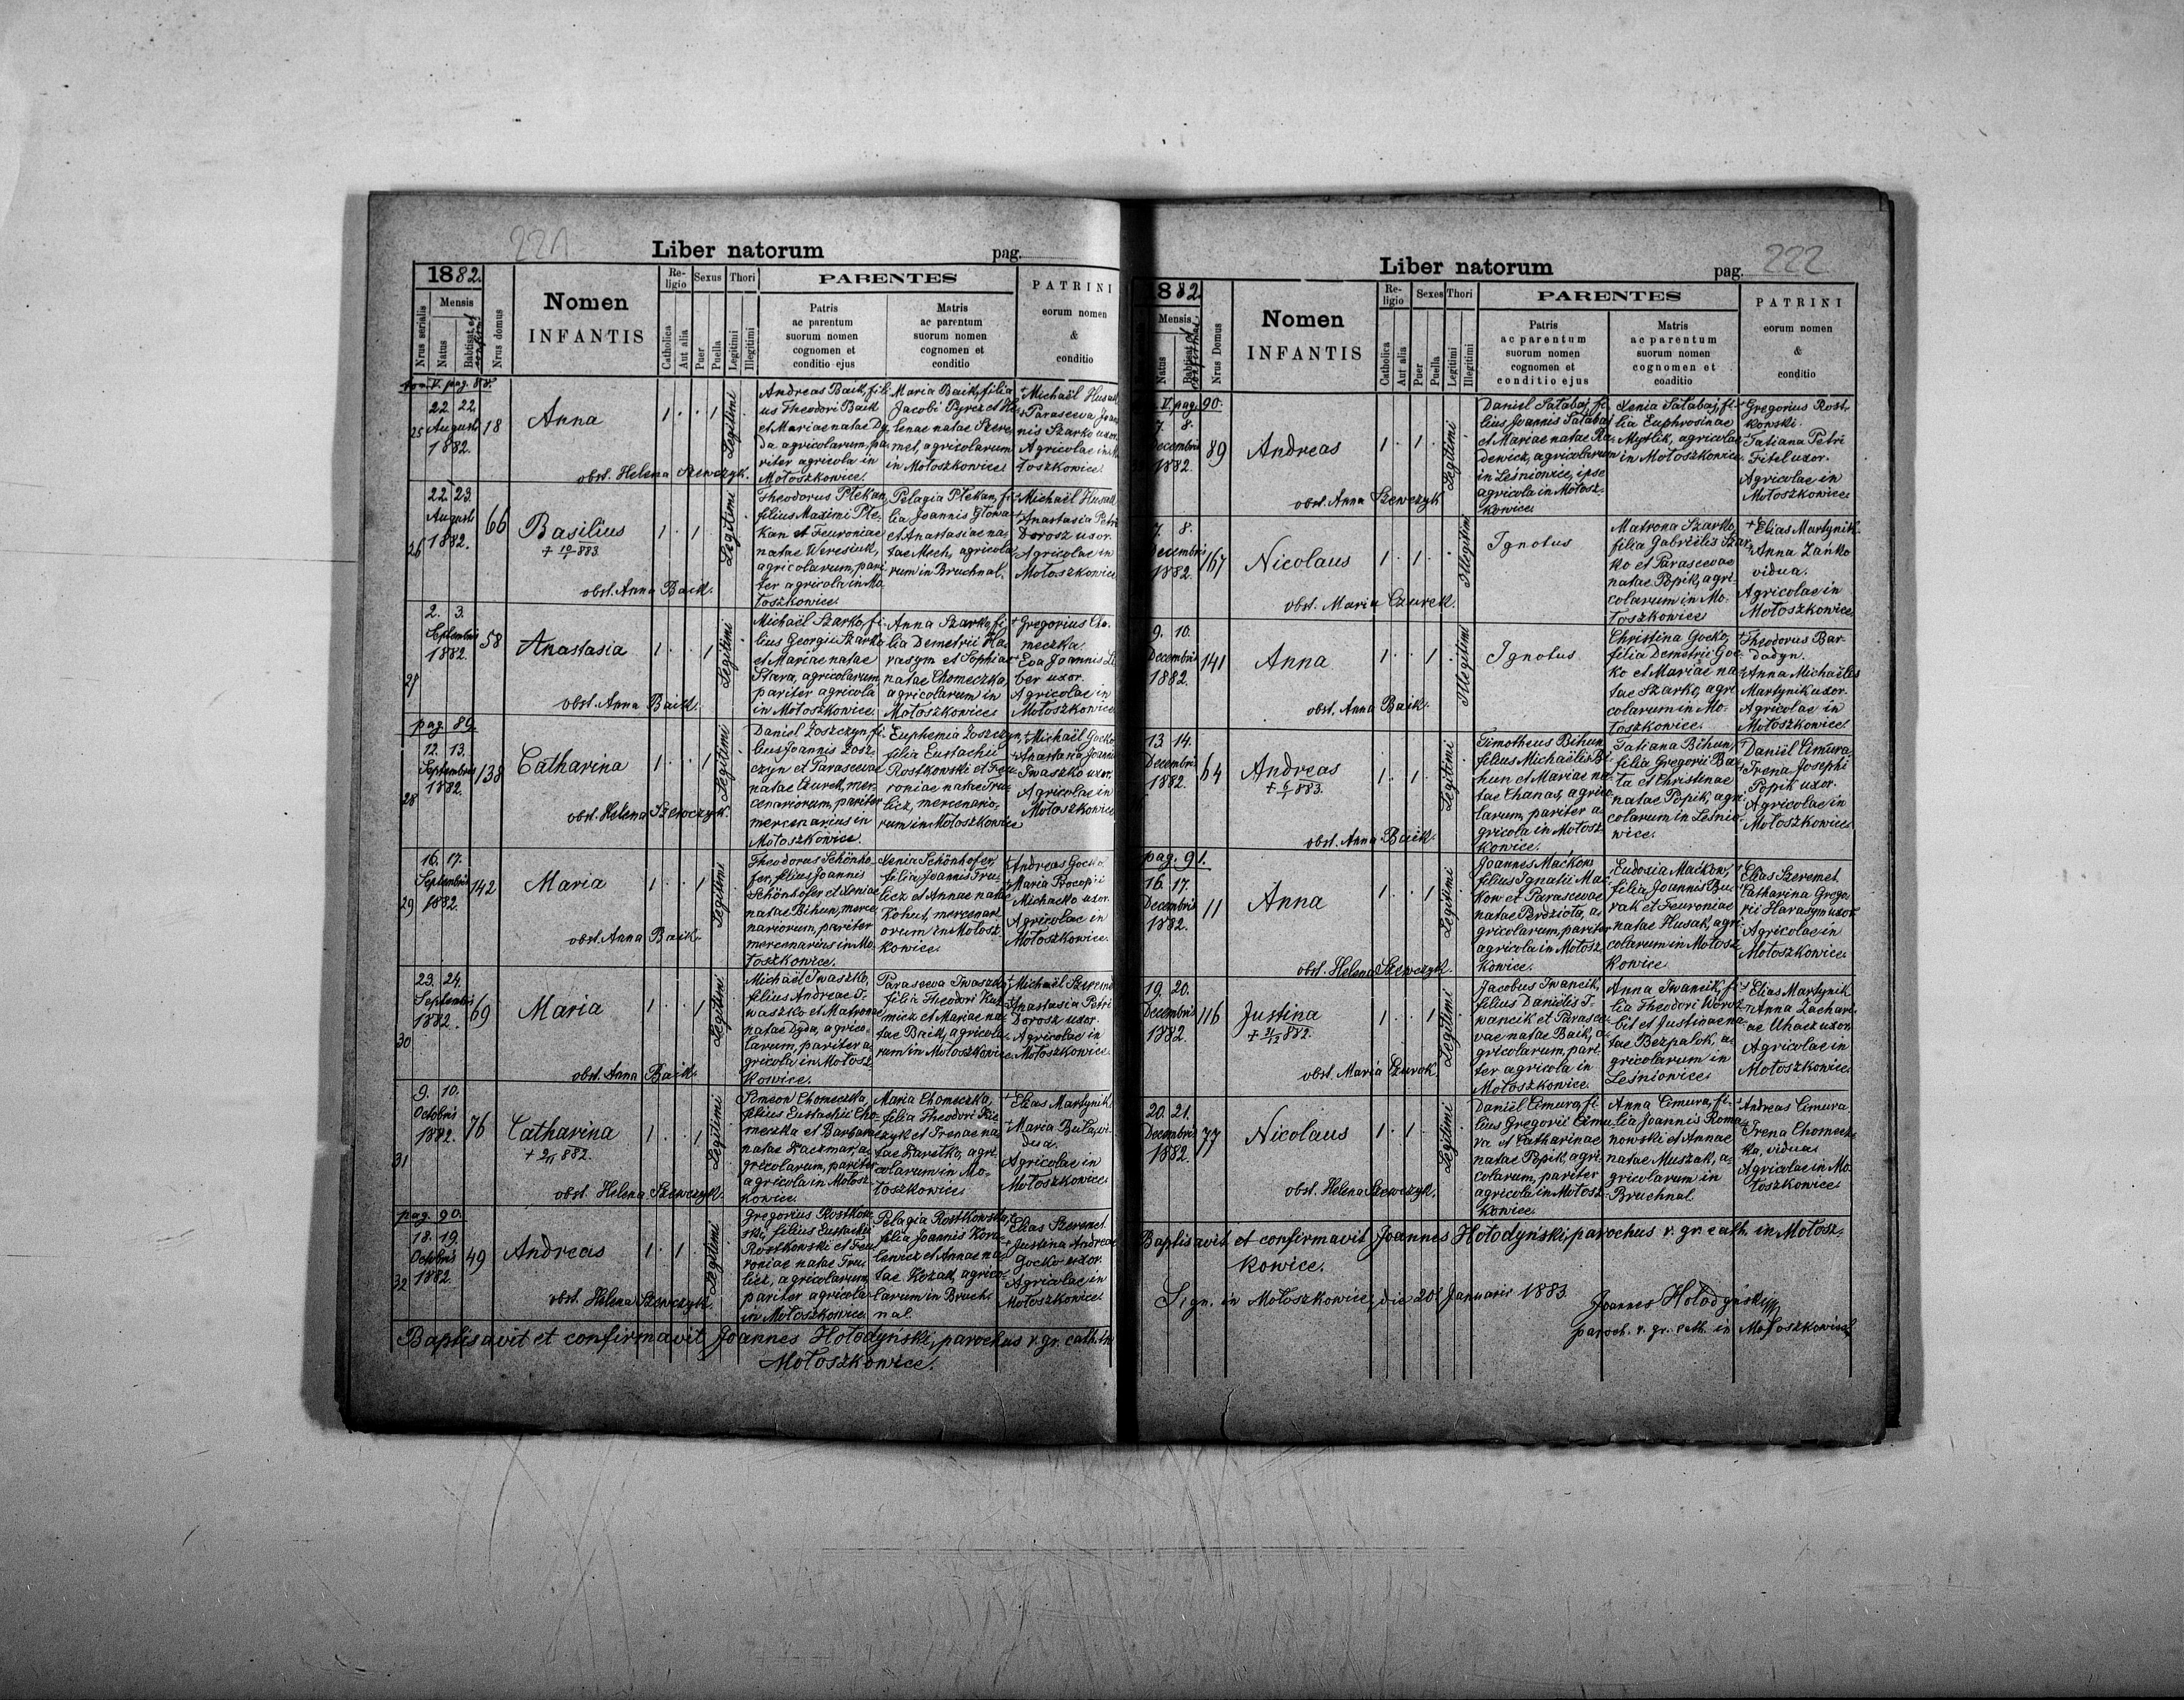 221
Liber natorum pag.
1882.
Nrus serialis
Mensis
Natus
Babtisat et confir.
Nrus domus
Nomen
INFANTIS
Religio
Catholica
Aut alia
Sexus
Puer
Puella
Thori
Legitimi
Illegitimi
PARENTES
Patris
ac parentum
suorum nomen
cognomen et
conditio ejus
Matris
ac parentum
suorum nomen
cognomen et
conditio
PATRINI
eorum nomen
&
conditio
pag. 88.
25
22. 22.
Augusti
1882.
18
Anna
1 . . 1
Legitimi
obst. Helena Szewczyk.
Andreas Baik, fili-
us Theodori Baik
et Mariae natae Dy-
da, agricolarum, pa-
riter agricola in
Mołoszkowice.
Maria Baik, filia
Jacobi Pyrcz et He-
lenae natae Szere-
met, agricolarum
in Mołoszkowice.
Michaël Husak
Parasceva Joan-
nis Szarko uxor.
Agricolae in Mo-
łoszkowice.
26
22. 23.
Augusti
1882.
66
Basilius
1 . 1 .
Legitimi
obst. Anna Baik.
Theodorus Płekan,
filius Maximi Płe-
kan et Feuroniae
natae Weresiuk,
agricolarum, pari-
ter agricola in Mo-
łoszkowice.
Pelagia Płekan, fi-
lia Joannis Głowa
et Anastasiae na-
tae Mech, agricola-
rum in Bruchnal.
Michaël Husak
Anastasia Petri
Dorosz uxor.
Agricolae in
Mołoszkowice
27
2. 3.
Septembris
1882.
58
Anastasia
1 . . 1
Legitimi
obst. Anna Baik.
Michaël Szarko, fi-
lius Georgii Szarko
et Mariae natae
Stara, agricolarum,
pariter agricola
in Mołoszkowice.
Anna Szarko, fi-
lia Demetrii Ha-
rasym et Sophiae
natae Chomeczka,
agricolarum in
Mołoszkowice.
Gregorius Cho-
meczka.
Eva Joannis Li-
ber uxor.
Agricolae in
Mołoszkowice
pag. 89.
28
12. 13.
Septembris
1882.
138
Catharina
1 . . 1
Legitimi
obst. Helena Szewczyk.
Daniel Łoszczyn, fi-
lius Joannis Łosz-
czyn et Parascevae
natae Czurek, mer-
cenariorum, pariter
mercenarius in
Mołoszkowice.
Euphemia Łoszczyn,
filia Eustachii
Rostkowski et Feu-
roniae natae Tru-
licz, mercenario-
rum in Mołoszkowice
Michaël Gocko
Anastasia Joannis
Iwaszko uxor.
Agricolae in
Mołoszkowice
29
16. 17.
Septembris
1882.
142
Maria
1 . . 1
Legitimi
obst. Anna Baik.
Theodorus Schönho-
fer, filius Joannis
Schönhofer et Xeniae
natae Bihun, merce-
nariorum, pariter
mercenarius in Mo-
łoszkowice.
Xenia Schönhofer,
filia Joannis Tru-
licz et Annae natae
Kohut, mercenari-
orum in Mołosz-
kowice.
Andreas Gocko.
Maria Procopii
Michaćko uxor.
Agricolae in
Mołoszkowice.
30
23. 24.
Septembris
1882.
69
Maria
1 . . 1
Legitimi
obst. Anna Baik.
Michaël Iwaszko,
filius Andreae I-
waszko et Matronae
natae Dyda, agrico-
larum, pariter a-
gricola in Mołosz-
kowice.
Parasceva Iwaszko,
filia Theodori
et Mariae na-
tae Baik, agricola-
rum in Mołoszkowice
Michaël Szeremet
Anastasia Petri
Dorosz uxor.
Agricolae in
Mołoszkowice
31
9. 10.
Octobris
1882.
76
Catharina
1 . . 1
Legitimi
obst. Helena Szewczyk.
Simeon Chomeczka,
filius Eustachii Cho-
meczka et Barbarae
natae Kaczmar, a-
gricolarum, pariter
agricola in Mołosz-
kowice.
Maria Chomeczka,
filia Theodori
et Irenae na-
tae agri-
colarum in Mo-
łoszkowice
Elias Martynik
Maria Buła, vi-
dua.
Agricolae in
Mołoszkowice
pag. 90.
32
18. 19.
Octobris
1882.
49
Andreas
1 . 1 .
Legitimi
obst. Helena Szewczyk.
Gregorius Rostkow-
ski, filius Eustachii
Rostkowski et Feu-
roniae natae Tru-
licz, agricolarum,
pariter agricola
in Mołoszkowice.
Pelagia Rostkowska,
filia Joannis Kowa-
lewicz et Annae na-
tae Kozak, agrico-
larum in Bruch-
nal.
Elias Szeremet
Justina Andreae
Gocko uxor.
Agricolae in
Mołoszkowice
Baptisavit et confirmavit Joannes Hołodyński, parochus r. gr. cath. in
Mołoszkowice.
Liber natorum pag. 222
1882.
Mensis
Natus
Babtisat et confirmat
Nrus Domus
Nomen
INFANTIS
Religio
Catholica
Aut alia
Sexes
Puer
Puella
Thori
Legitimi
Illegitimi
PARENTES
Patris
ac parentum
suorum nomen
cognomen et
conditio ejus
Matris
ac parentum
suorum nomen
cognomen et
coaditio
PATRINI
eorum nomen
&
conditio
V. pag. 90.
7. 8.
Decembris
1882.
89
Andreas
1 . 1 .
Legitimi
obst. Anna Szewczyk
Daniel Sałabaj, fi-
lius Joannis Sałabaj
et Mariae natae Ra-
dewicz, agricolarum
in Leśniowice, ipse
agricola in Mołosz-
kowice
Xenia Sałabaj, fi-
lia Euphrosinae
Mytlik, agricolae
in Mołoszkowice.
Gregorius Rost-
kowski.
Tatiana Petri
Fitel uxor.
Agricolae in
Mołoszkowice
7. 8.
Decembris
1882.
167
Nicolaus
1 . 1 .
Illegitimi
obst. Maria Czurek.
Ignotus
Matrona Szarko,
filia Gabriëlis Szar-
ko et Parascevae
natae Popik, agri-
colarum in Mo-
łoszkowice
Elias Martynik.
Anna Zańko
vidua.
Agricolae in
Mołoszkowice
9. 10.
Decembris
1882.
141
Anna
1 . . 1
Illegitimi
obst. Anna Baik.
Ignotus
Christina Gocko,
filia Demetrii Goc-
ko et Mariae na-
tae Szarko, agri-
colarum in Mo-
łoszkowice.
Theodorus Bar-
dadyn.
Anna Michaëlis
Martynik uxor.
Agricolae in
Mołoszkowice
13. 14.
Decembris
1882.
64
Andreas
+ 6/1 883.
1 . 1 .
Legitimi
obst. Anna Baik.
Timotheus Bihun,
filius Michaëlis Bi-
hun et Mariae na-
tae Chanas, agrico-
larum, pariter a-
gricola in Mołosz-
kowice.
Tatiana Bihun,
filia Gregorii Ba-
ta et Christinae
natae Popik, agri-
colarum in Leśnio-
wice.
Daniël Cimura,
Irena Josephi
Popik uxor.
Agricolae in
Mołoszkowice
pag. 91.
16. 17.
Decembris
1882.
11
Anna
1 . . 1
Legitimi
obst. Helena Szewczyk.
Joannes Maćkow,
filius Ignatii Mać-
kow et Parascevae
natae Perdzioła, a-
gricolarum, pariter
agricola in Mołosz-
kowice.
Eudoxia Maćkow,
filia Joannis Bu-
rak et Feuroniae
natae Husak, agri-
colarum in Mołosz-
kowice
Elias Szeremet
Catharina Grego-
rii Harasym uxor
Agricolae in
Mołoszkowice
19. 20.
Decembris
1882.
116
Justina
+ 31/12 882.
1 . . 1
Legitimi
obst. Maria Czurek.
Jacobus Iwancik,
filius Daniëlis I-
wancik et Parasce-
vae natae Baik, a-
gricolarum, pari-
ter agricola in
Mołoszkowice
Anna Iwancik, fi-
lia Theodori Worob-
bit et Justinae na-
tae Bezpalok, a-
gricolarum in
Leśniowice
Elias Martynik
Anna Zachari-
ae Uhacz uxor
Agricolae in
Mołoszkowice
20. 21.
Decembris
1882.
77
Nicolaus
1 . 1 .
Legitimi
obst. Helena Szewczyk.
Daniël Cimura, fi-
lius Gregorii Cimu-
ra et Catharinae
natae Popik, agri-
colarum, pariter
agricola in Mołosz-
kowice.
Anna Cimura, fi-
lia Joannis Roma-
nowski et Annae
natae Muszak, a-
gricolarum in
Bruchnal.
Andreas Cimura
Irena Chomecz-
ka, vidua
Agricolae in Mo-
łoszkowice
Baptisavit et confirmavit Joannes Hołodyński, parochus r. gr. cath. in Mołosz-
kowice.
Sign. in Mołoszkowice, die 20 Januarii 1883.
Joannes Hołodyński
paroch. r. gr. cath. in Mołoszkowice